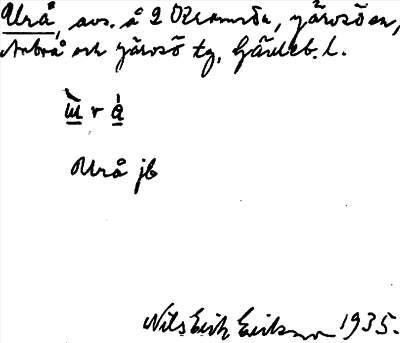 Urå, avs. å 2 Okramsta, Järvsö sn,
Arbrå och Järvsö tg, Gävleb. l.
ù r å̀
Urå jb
Nils Erik Erikson 1935.